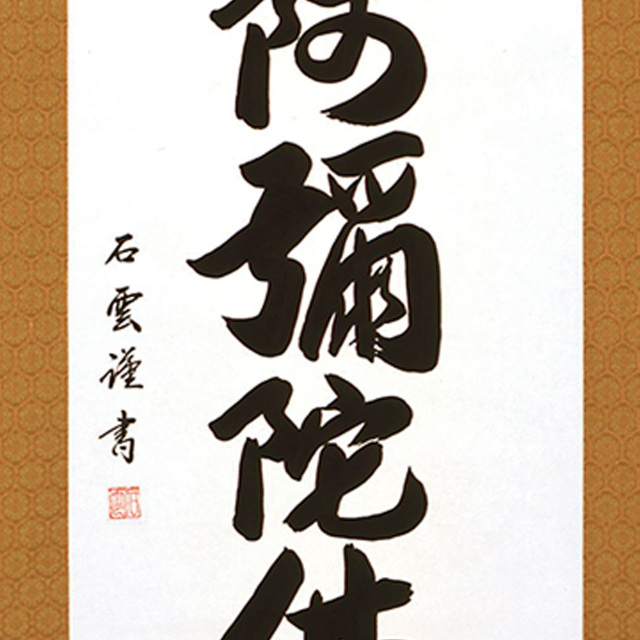 阿彌陀佛
石雲謹書